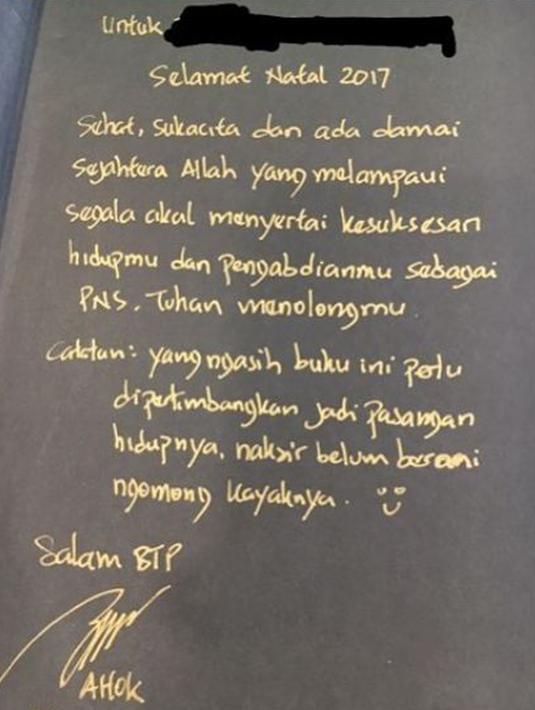 Untuk
Selamat Natal 2017
Sehat, sukacita dan ada damai
Sejahtera Allah yang melampaui
segala akal menyertai kesuksesan
hidupmu dan pengabdianmu sebagai
PNS. Tuhan menolongmu.
Catatan: yang ngasih buku ini perlu
dipertimbangkan jadi pasangan
hidupnya, naksir belum berani
ngomong kayaknya.
Salam BTP
AHOK